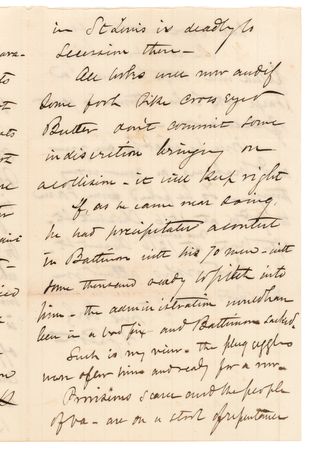 in St Louis is deadly to
Secession there -
All looks well now and if
Some fool like Cross Eyed
Butler don't commit some
indiscretion bringing on
a collision - it will keep right
If, as he came near doing
he had precipitated a contest
in Baltimore with his 70 men - with
some thousand ready to pitch into
him - the administration would have
been in a bad fix and Baltimore sacked.
Such is my view - the plug uglies
were after him and ready for a row -
Provisions scarce and the people
of Va - are on a stool of repentance